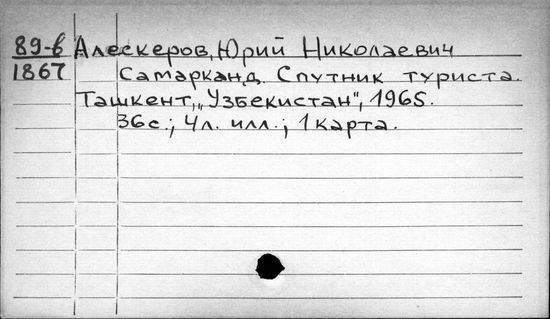 89-в Алескеров, Юрий Николаевич
1867 Самарканд. Спутник туриста.
Ташкент, „Узбекистан", 1965.
36с.; 4л. илл.; 1 карта.